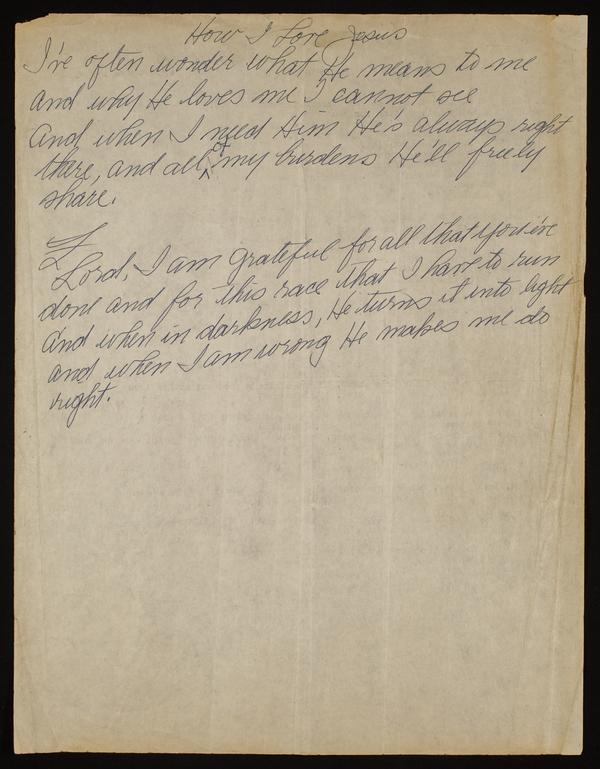 How I Love Jesus
I've often wonder what He means to me
and why He loves me I cannot see
And when I need Him He's always right
there, and all of my burdens He'll freely
share.
L
Lord, I am grateful for all that you've
done and for this race that I have to run
And when in darkness, He turns it into light
and when I am wrong He makes me do
right.